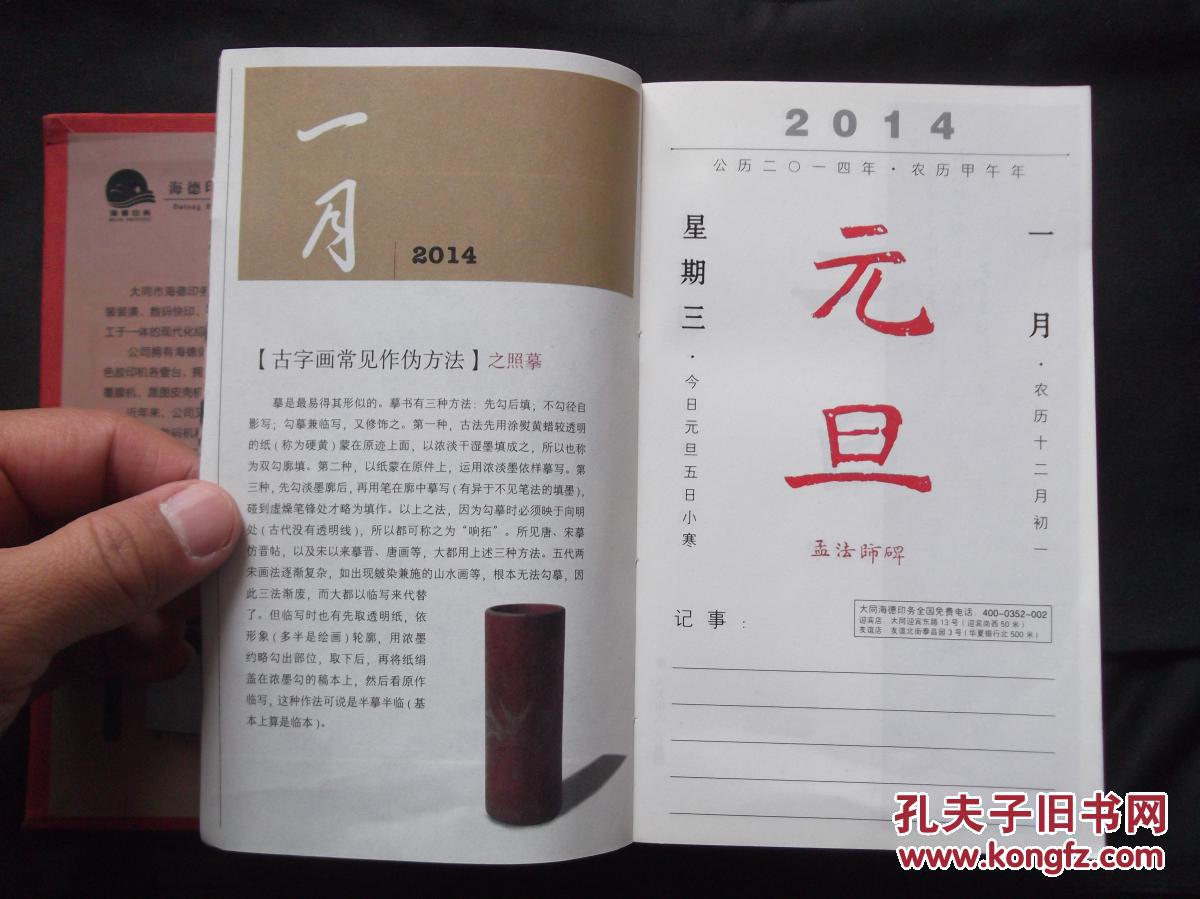 海德印
大同市海德印务
装装潢、数码快印、
工于一体的现代化综
公司拥有海德
色胶印机各壹台、拥
近年来，公司又
一月
2014
【古字画常见作伪方法】之照摹
摹是最易得其形似的。摹书有三种方法：先勾后填；不勾径自
影写；勾摹兼临写，又修饰之。第一种，古法先用涂熨黄蜡较透明
的纸(称为硬黄)蒙在原迹上面，以浓淡干湿墨填成之，所以也称
为双勾廓填。第二种，以纸蒙在原件上，运用浓淡墨依样摹写。第
三种，先勾淡墨廓后，再用笔在廓中摹写(有异于不见笔法的填墨)，
碰到虚燥笔锋处才略为填作。以上之法，因为勾摹时必须映于向明
处(古代没有透明线)，所以都可称之为“响拓”。所见唐、宋摹
仿晋帖，以及宋以来摹晋、唐画等，大都用上述三种方法。五代两
宋画法逐渐复杂，如出现皴染兼施的山水画等，根本无法勾摹，因
此三法渐废，而大都以临写来代替
了。但临写时也有先取透明纸，依
形象(多半是绘画)轮廓，用浓墨
约略勾出部位，取下后，再将纸绢
盖在浓墨勾的稿本上，然后看原作
临写，这种作法可说是半摹半临(基
本上算是临本)。
2014
公历二〇一四年·农历甲午年
一月·农历十二月初一
元旦
孟法师碑
星期三·今日元旦五日小寒
大同海德印务全国免费电话：400-0352-002
迎宾店：大同迎宾东路13号(迎宾岗西50米)
友谊店：友谊北街泰昌园3号(华夏银行北500米)
记事：
孔夫子旧书网
www.kongfz.com